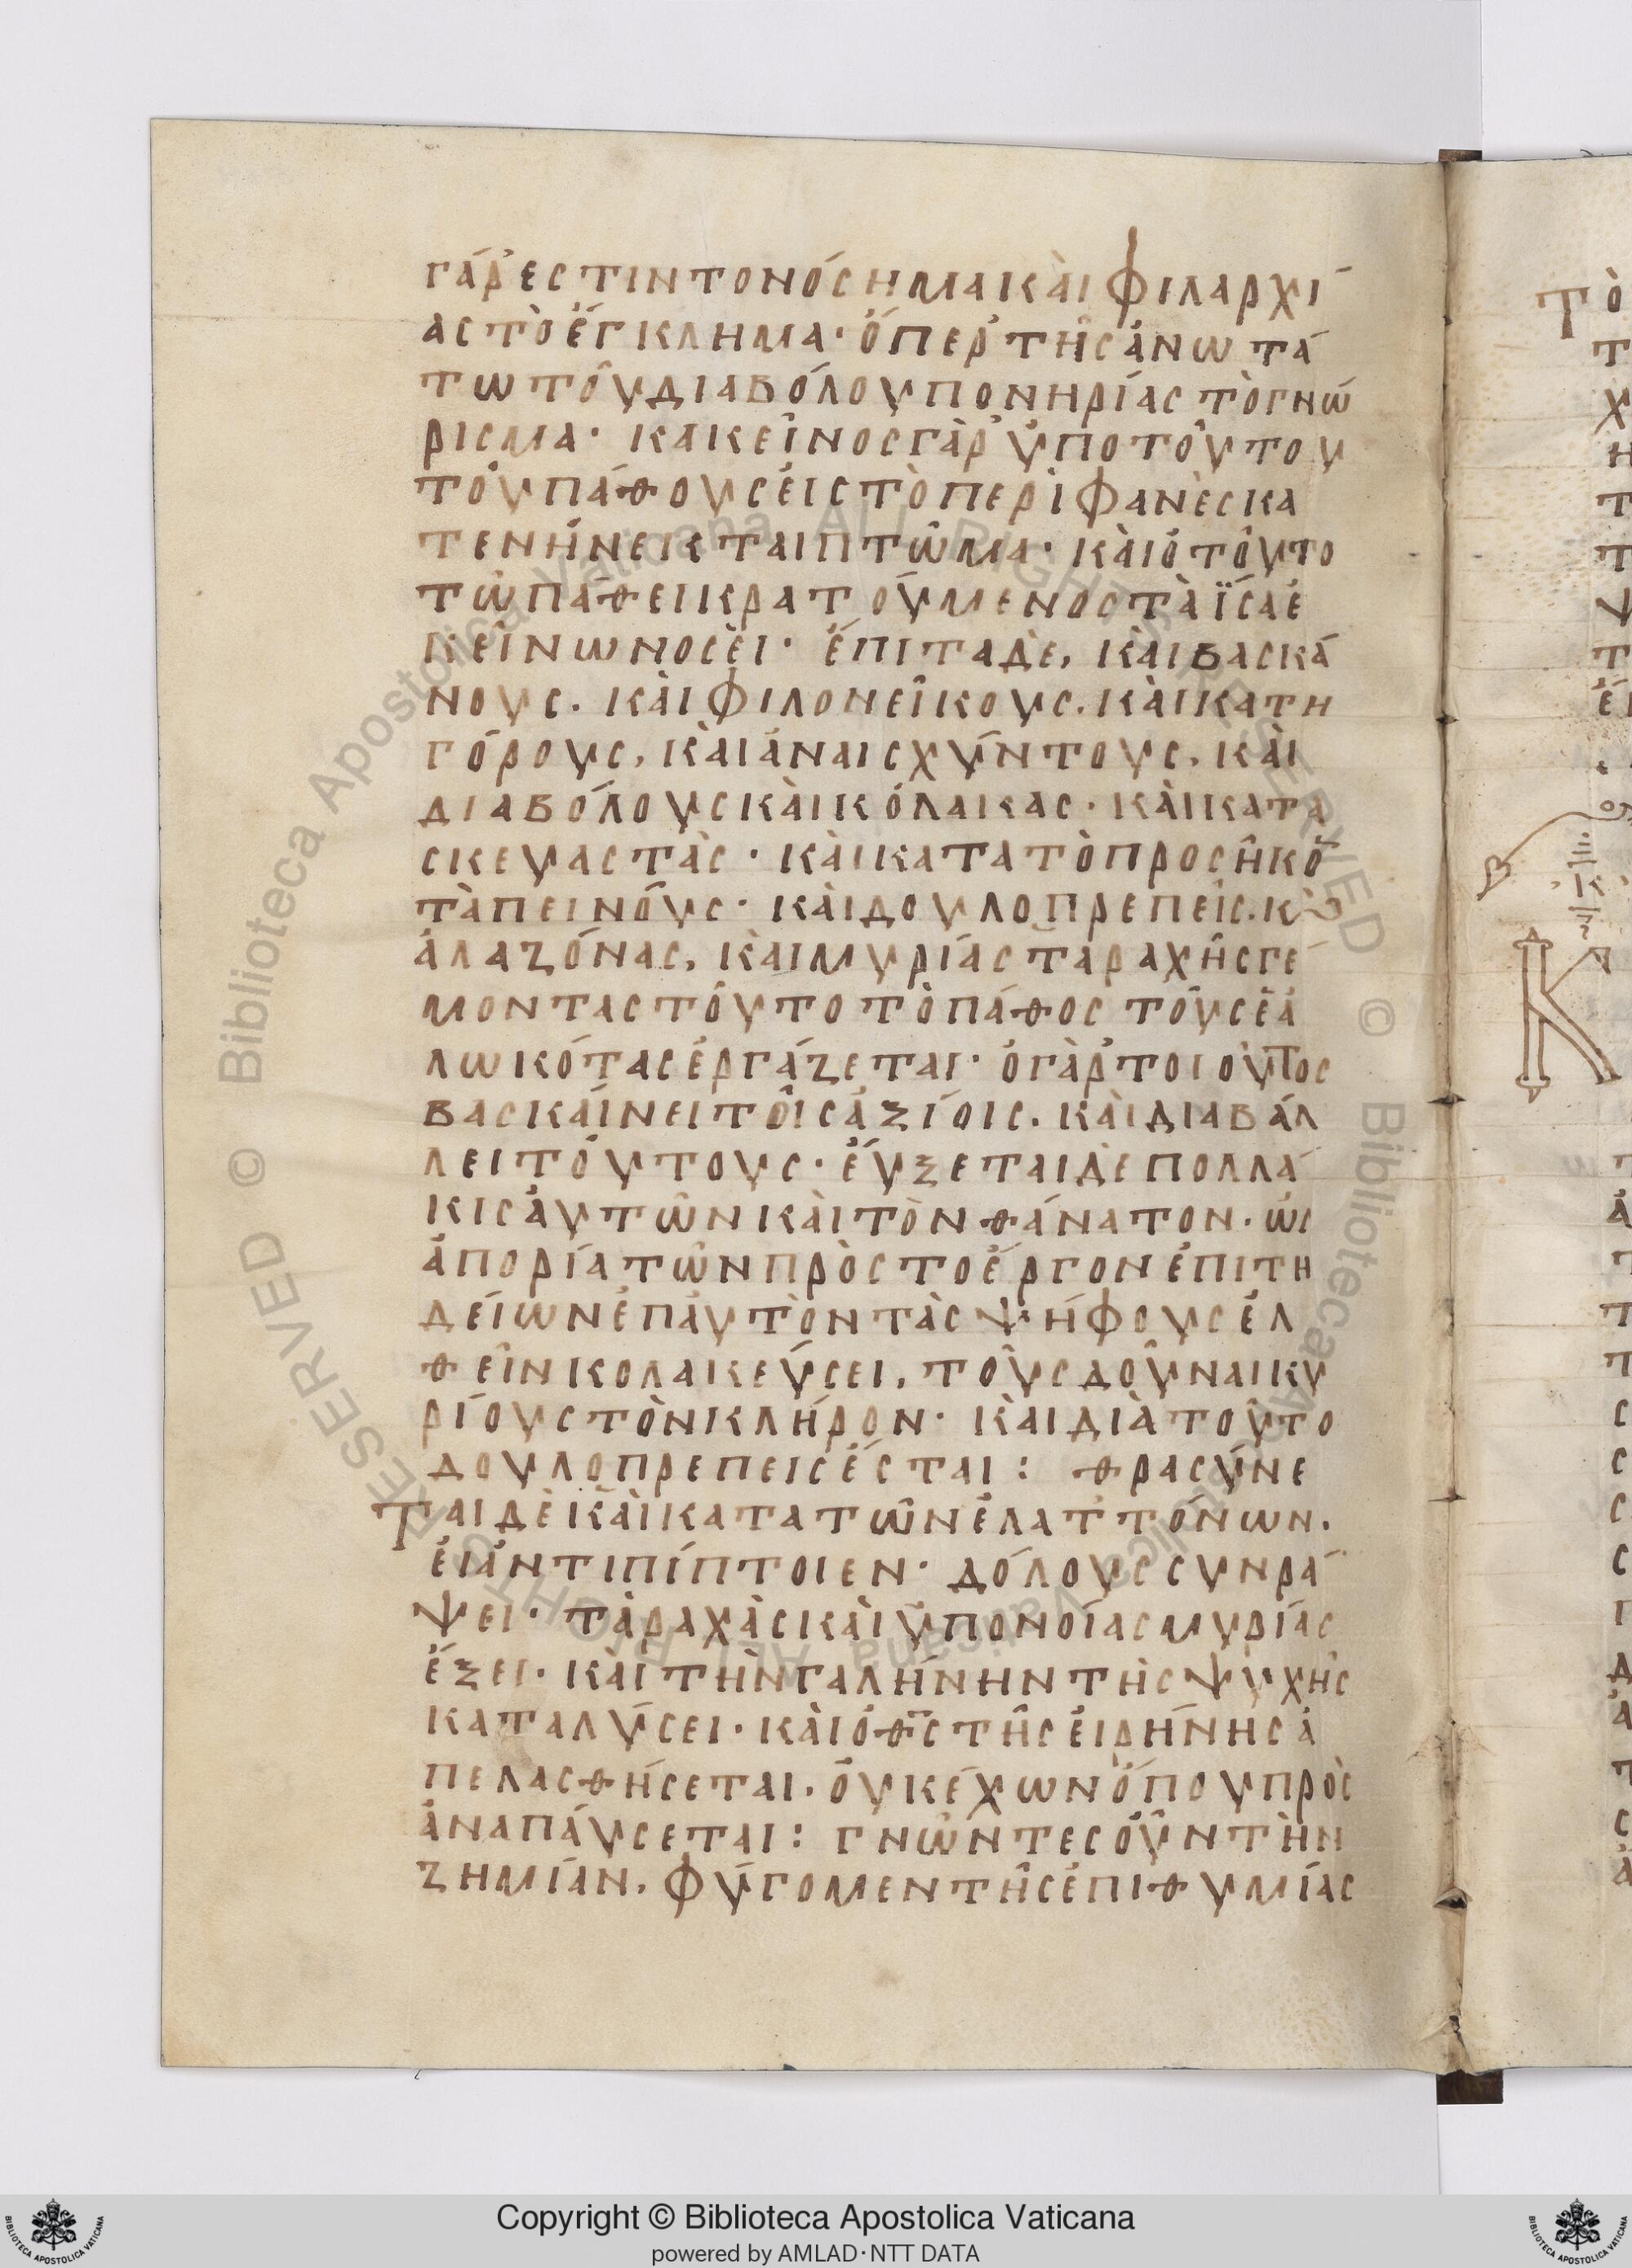 γάρ ἐστιν τὸ νόσημα κὰι φιλαρχί
ας τὸ ἔγκλημα· ὅπερ τῆς ἀνωτά
τω τοῦ διαβόλου πονηρίας τὸ γνώ
ρισμα· κακεῖνος γὰρ ὑπο τοῦ του
τοῦ πάθους ἐις τὸ περιφανὲς κα
τενήνεικται πτῶμα· κὰι ὁ τοῦτο
τῶ πάθει κρατούμενος τὰ ἴσα ἐ
κείνω νοσεῖ· ἔπιτα δὲ, κὰι βασκά
νους. κὰι φιλονείκους. κὰι κατη
γόρους, κὰι ἀναισχύντους, κὰι
διαβόλους κὰι κόλακας· κὰι κατα
σκευαστὰς· κὰι κατα τὸ προσῆκο̄
τὰπεινόυς· κὰι δουλοπρεπεῖς. κ̀
ἀλαζόνας, κὰι μυρίας ταραχῆς γέ
μοντας τοῦτο τὸ πάθος τοῦς ἑα
λωκότας ἐργάζεται· ὁ γὰρ τοιοῦτος
βασκαίνει τοῖς ἀξίοις. κὰι διαβάλ
λει τόυτους· ἔυξεται δὲ πολλά
κις ἀυτῶν κὰι τὸν θάνατον· ὡς
ἀπορία τῶν πρὸς το ἔργον ἐπιτη
δείων ἐπ ἀυτὸν τὰς ψήφους ἐλ
θεῖν κολακεύσει, τοῦς δοῦναι κυ
ρίους τὸν κλήρον· κὰι διὰ τοῦτο
δουλοπρεπεις ἔσται: θρασύνε
ται δὲ κὰι κατα τῶν ἐλαττόνων.
ἐι ἀντιπίπτοιεν· δόλους συνρά
ψει· τὰραχὰς κὰι ὑπονοίας μυρίας
ἕξει· κὰι τὴν γαλήνην τῆς ψυχῆς
καταλύσει· κὰι ὁ θ̄ς τῆς ἐιρήνης ἀ
πελασθήσεται, ὀυκ έχων ὅπου πρὸς
ἀναπάυσεται: γνῶντες οὖν τὴν
ζημίαν, φύγομεν τῆς ἐπιθυμίας
Copyright © Biblioteca Apostolica Vaticana
powered by AMLAD·NTT DATA